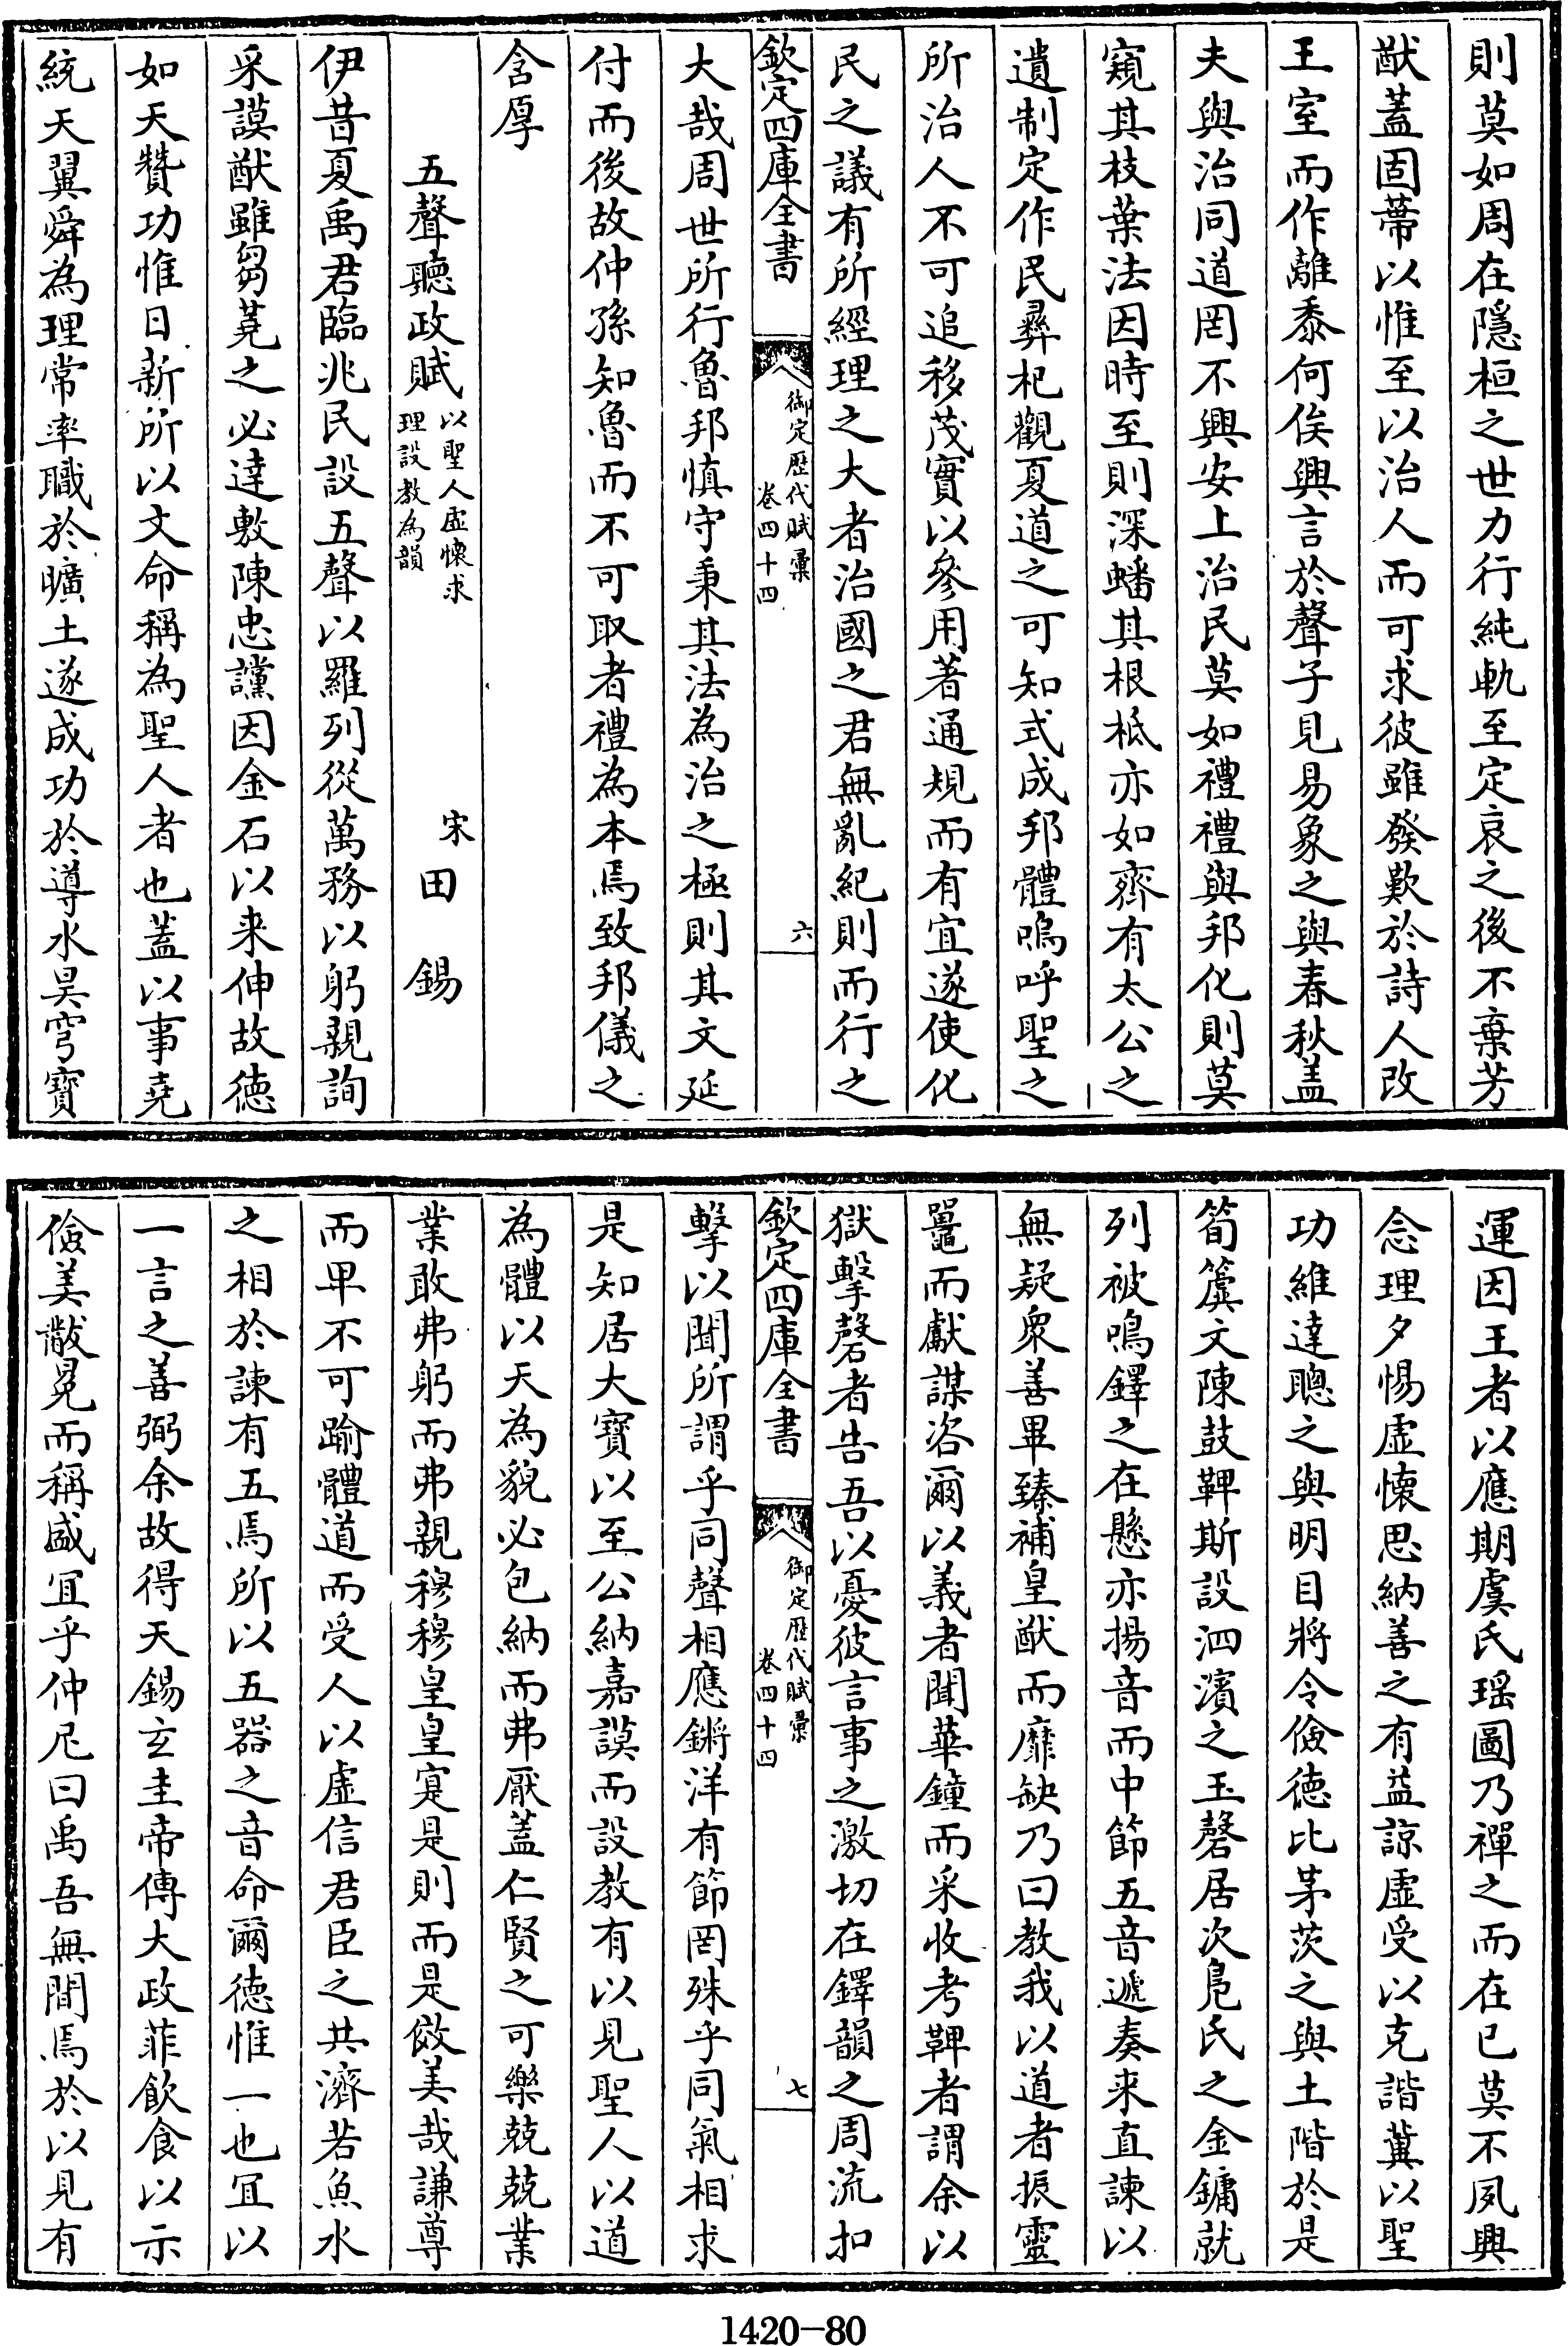 則莫如周在隱桓之世力行純軌至定哀之後不棄芳
猷蓋固蔕以惟至以治人而可求彼雖發歎於詩人改
王室而作離黍何俟興言於聲子見易象之與春秋蓋
夫與治同道罔不興安上治民莫如禮禮與邦化則莫
窺其枝葉法因時至則深蟠其根柢亦如齊有太公之
遺制定作民彛杞觀夏道之可知式成邦體嗚呼聖之
所治人不可追移茂實以參用著通規而有宜遂使化
民之議有所經理之大者治國之君無亂紀則而行之
欽定四庫全書
御定歴代賦彙
卷四十四
六
大哉周世所行魯邦慎守秉其法為治之極則其文延
付而後故仲孫知魯而不可取者禮為本焉致邦儀之
含厚
五聲聽政賦
以聖人虛懷求
理設教為韻
宋田錫
伊昔夏禹君臨兆民設五聲以羅列從萬務以躬親詢
采謨猷雖芻蕘之必達敷陳忠讜因金石以来伸故德
如天贊功惟日新所以文命稱為聖人者也蓋以事堯
統天翼舜為理常率職於曠土遂成功於導水昊穹寶
運因王者以應期虞氏瑶圖乃禪之而在已莫不夙興
念理夕惕虛懷思納善之有益諒虛受以克諧冀以聖
功維達聰之與明目將令儉德比茅茨之與土階於是
筍簴文陳鼓鞞斯設泗濱之玉磬居次鳧氏之金鏞就
列被鳴鐸之在懸亦揚音而中節五音遞奏来直諫以
無疑衆善畢臻補皇猷而靡缺乃曰教我以道者振靈
鼉而獻謀咨爾以義者聞華鐘而采收考鞞者謂余以
獄擊磬者告吾以憂彼言事之激切在鐸韻之周流扣
欽定四庫全書
御定歴代賦彙
卷四十四
七
擊以聞所謂乎同聲相應鏘洋有節罔殊乎同氣相求
是知居大寶以至公納嘉謨而設教有以見聖人以道
為體以天為貌必包納而弗厭蓋仁賢之可樂兢兢業
業敢弗躬而弗親穆穆皇皇寔是則而是傚美哉謙尊
而卑不可踰體道而受人以虛信君臣之共濟若魚水
之相於諫有五焉所以五器之音命爾德惟一也宜以
一言之善弼余故得天錫玄圭帝傳大政菲飲食以示
儉美黻冕而稱盛宜乎仲尼曰禹吾無間焉於以見有
1420-80